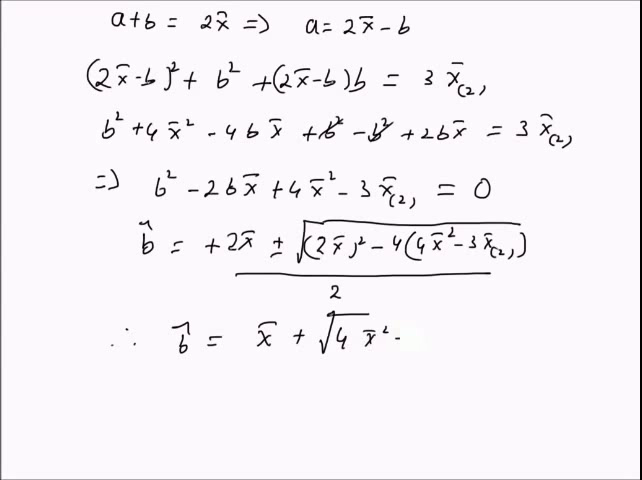 a+b = 2x̄ => a= 2x̄ - b
(2x̄-b)² + b² +(2x̄-b)b = 3 x̄(2)
b² +4x̄² - 4bx̄ + b² - b² + 2bx̄ = 3 x̄(2)
=> b² - 2bx̄ + 4x̄² - 3x̄(2) = 0
b̂ = +2x̄ ± √(2x̄)² - 4(4x̄² - 3x̄(2))
2
∴ b̂ = x̄ + √4 x̄² -